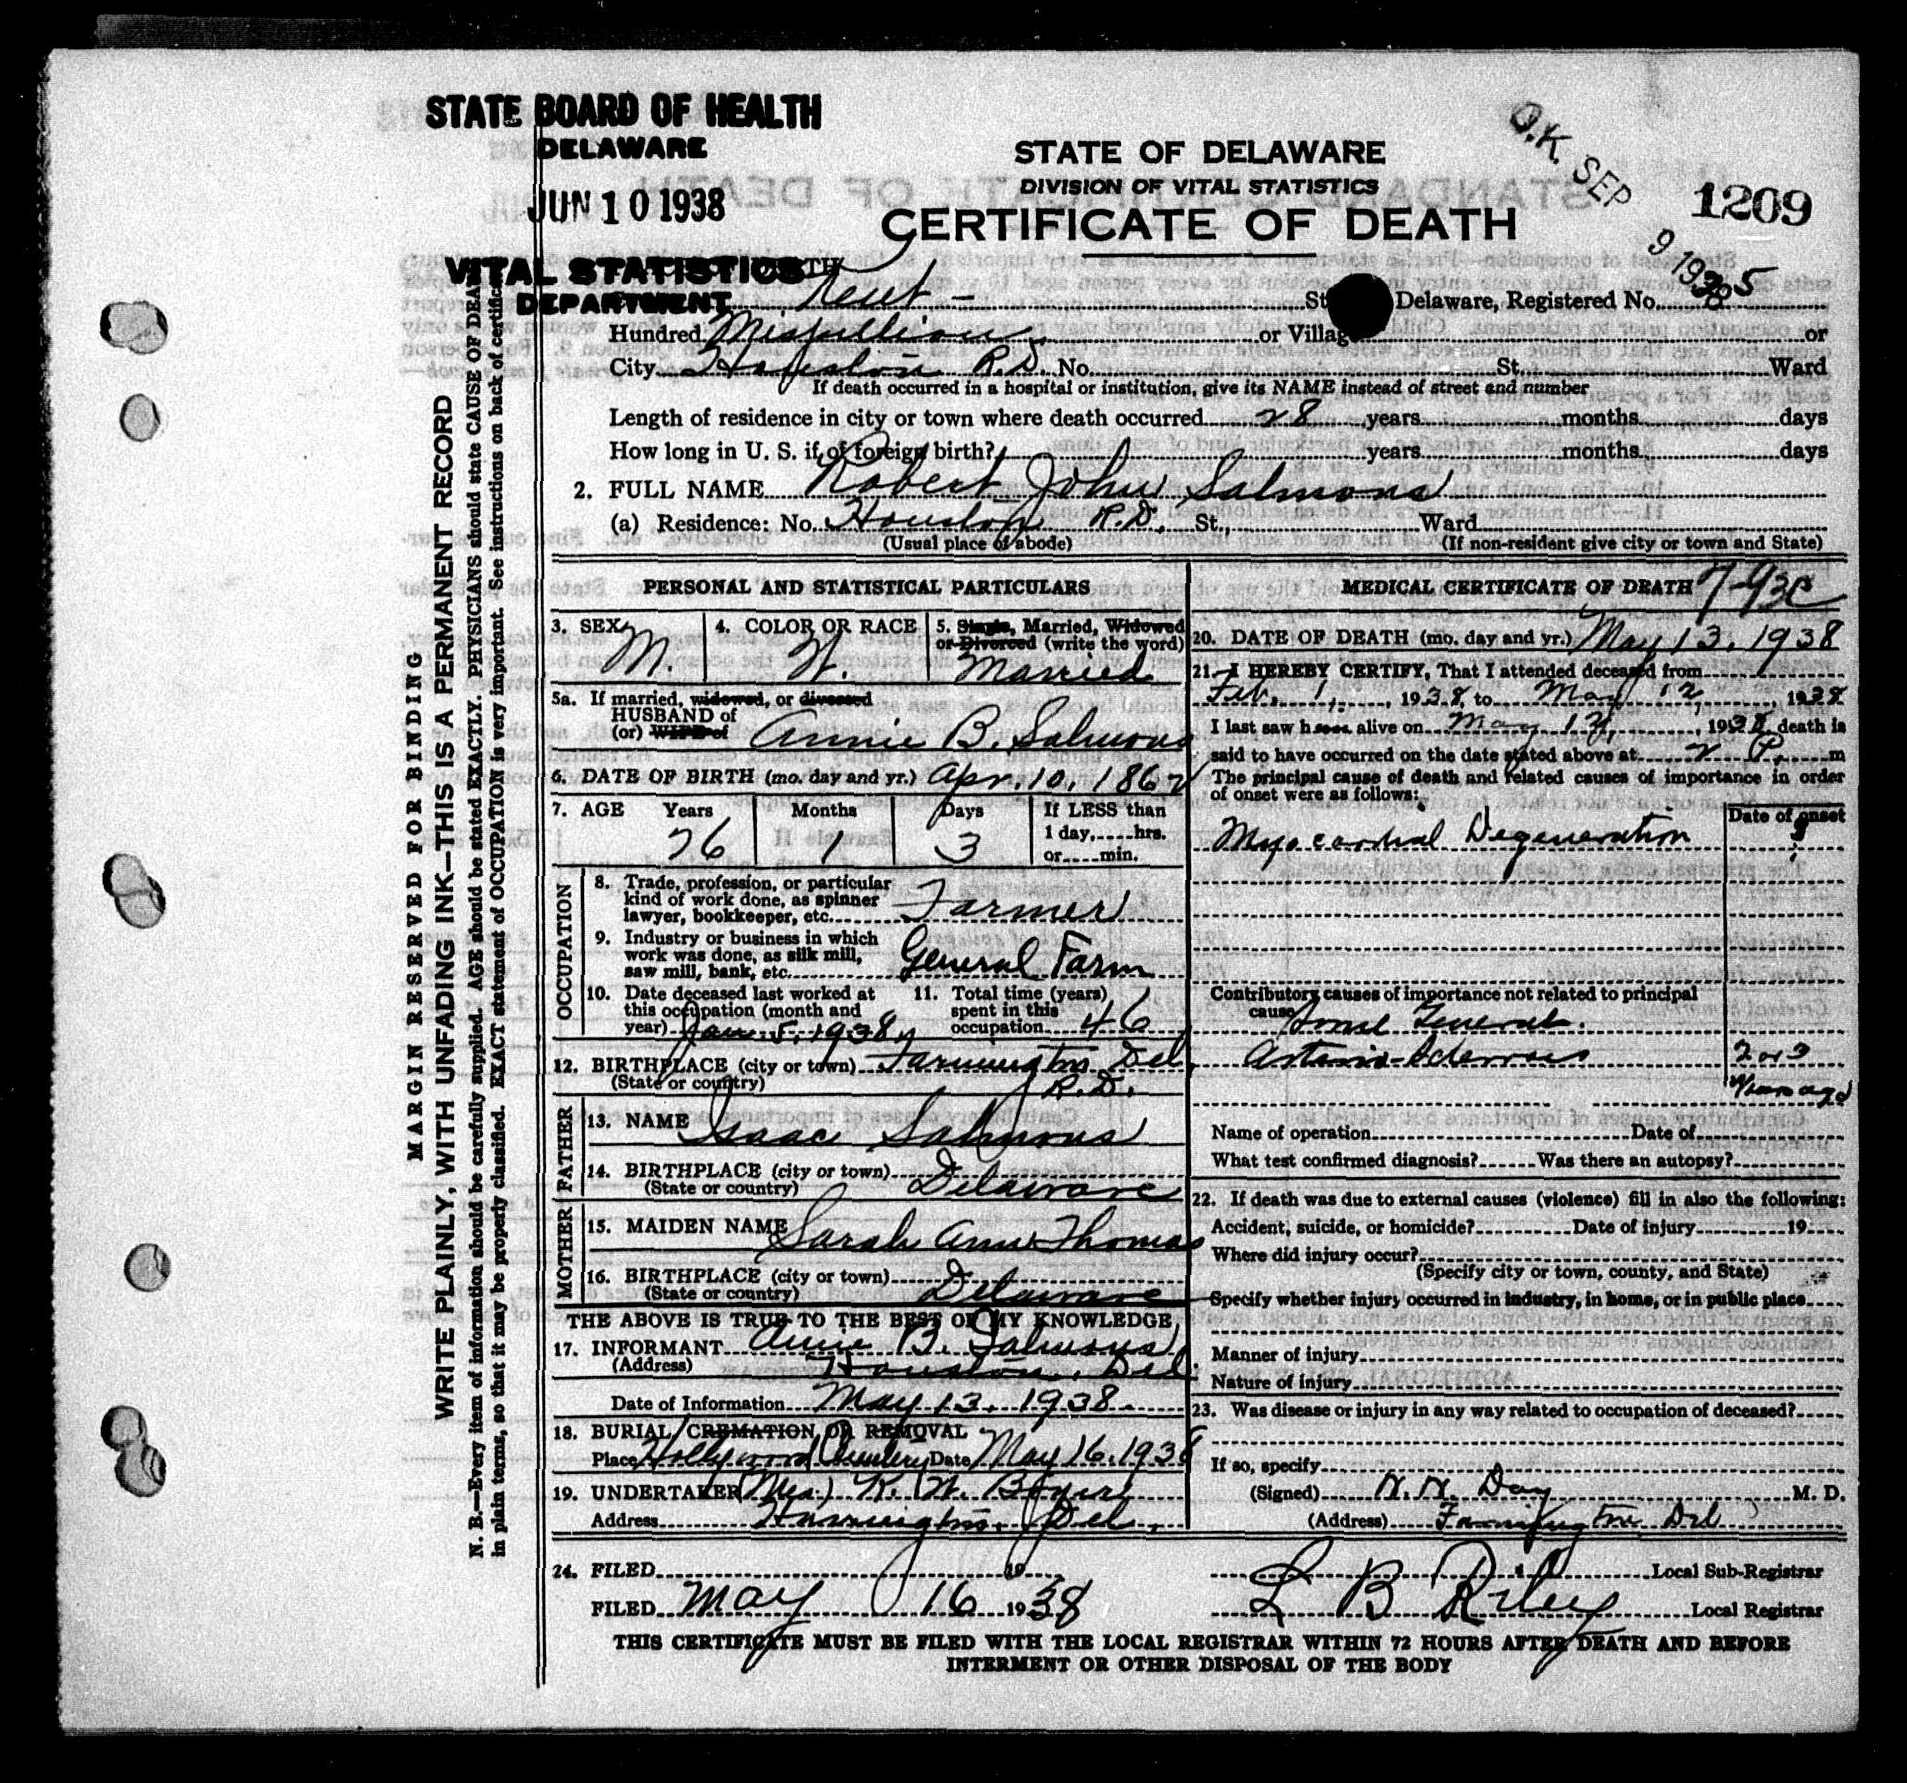 STATE BOARD OF HEALTH
DELAWARE
JUN 10 1938
VITAL STATISTICS
DEPARTMENT
STATE OF DELAWARE
DIVISION OF VITAL STATISTICS
CERTIFICATE OF DEATH
O.K. SEP 9 1938
1209
Kent - Delaware, Registered No. 35
Hundred Mispillion or Village or
City Houston R.D. No. St. Ward
If death occurred in a hospital or institution, give its NAME instead of street and number
Length of residence in city or town where death occurred 28 years months days
How long in U. S. if of foreign birth? years months days
2. FULL NAME Robert John Salmons
(a) Residence: No. Houston R.D. St., Ward
(Usual place of abode) (If non-resident give city or town and State)
PERSONAL AND STATISTICAL PARTICULARS
3. SEX M. 4. COLOR OR RACE W. 5. Single, Married, Widowed
or Divorced (write the word)
Married
5a. If married, widowed, or divorced
HUSBAND of
(or) WIFE of Annie B. Salmons
6. DATE OF BIRTH (mo. day and yr.) Apr. 10, 1862
7. AGE Years Months Days If LESS than
1 day, hrs.
76 1 3 or min.
OCCUPATION
8. Trade, profession, or particular
kind of work done, as spinner
lawyer, bookkeeper, etc. Farmer
9. Industry or business in which
work was done, as silk mill,
saw mill, bank, etc. General Farm
10. Date deceased last worked at
this occupation (month and
year) Jan. 5, 1938
11. Total time (years)
spent in this
occupation 46
12. BIRTHPLACE (city or town) Farmington Del.
(State or country) R.D.
FATHER
13. NAME Isaac Salmons
14. BIRTHPLACE (city or town)
(State or country) Delaware
MOTHER
15. MAIDEN NAME Sarah Ann Thomas
16. BIRTHPLACE (city or town)
(State or country) Delaware
THE ABOVE IS TRUE TO THE BEST OF MY KNOWLEDGE
17. INFORMANT Annie B. Salmons
(Address) Houston, Del.
Date of Information May 13, 1938.
18. BURIAL, CREMATION, OR REMOVAL
Place Hollywood Cemetery Date May 16, 1938
19. UNDERTAKER (Mrs.) K. W. Boyer
Address Harrington, Del.
MEDICAL CERTIFICATE OF DEATH 7-93c
20. DATE OF DEATH (mo. day and yr.) May 13, 1938
21. I HEREBY CERTIFY, That I attended deceased from
Feb. 1, 1938, to May 12, 1938
I last saw h alive on May 12, 1938, death is
said to have occurred on the date stated above at 2 P. m
The principal cause of death and related causes of importance in order
of onset were as follows:
Date of onset
Myocardial Degeneration ?
Contributory causes of importance not related to principal
cause Some General
Arterio-Sclerosis 2 or 3
years ago
Name of operation Date of
What test confirmed diagnosis? Was there an autopsy?
22. If death was due to external causes (violence) fill in also the following:
Accident, suicide, or homicide? Date of injury 19
Where did injury occur?
(Specify city or town, county, and State)
Specify whether injury occurred in industry, in home, or in public place
Manner of injury
Nature of injury
23. Was disease or injury in any way related to occupation of deceased?
If so, specify
(Signed) W. W. Day M. D.
(Address) Farmington Del
24. FILED 19 Local Sub-Registrar
FILED May 16 1938 L B Riley Local Registrar
THIS CERTIFICATE MUST BE FILED WITH THE LOCAL REGISTRAR WITHIN 72 HOURS AFTER DEATH AND BEFORE
INTERMENT OR OTHER DISPOSAL OF THE BODY
MARGIN RESERVED FOR BINDING
WRITE PLAINLY, WITH UNFADING INK—THIS IS A PERMANENT RECORD
N. B.—Every item of information should be carefully supplied. AGE should be stated EXACTLY. PHYSICIANS should state CAUSE OF DEATH
in plain terms, so that it may be properly classified. EXACT statement of OCCUPATION is very important. See instructions on back of certificate.